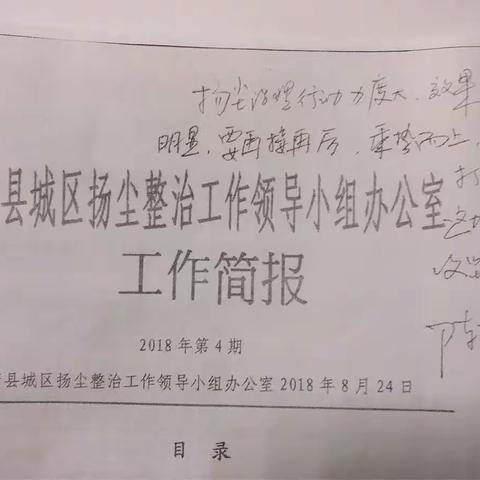 扬尘治理行动力度大、效果
明显，要再接再厉，乘势而上，
打
这场
攻坚
陈
县城区扬尘整治工作领导小组办公室
工作简报
2018年第4期
县城区扬尘整治工作领导小组办公室 2018年8月24日
目 录